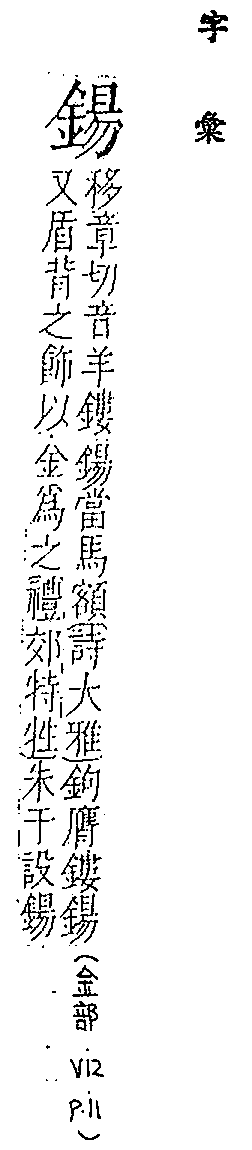 字彙
鍚
移章切音羊鏤鍚當馬額詩大雅鉤膺鏤鍚
又盾背之飾以金為之禮郊特牲朱干設鍚
(金部 V12 p.11)